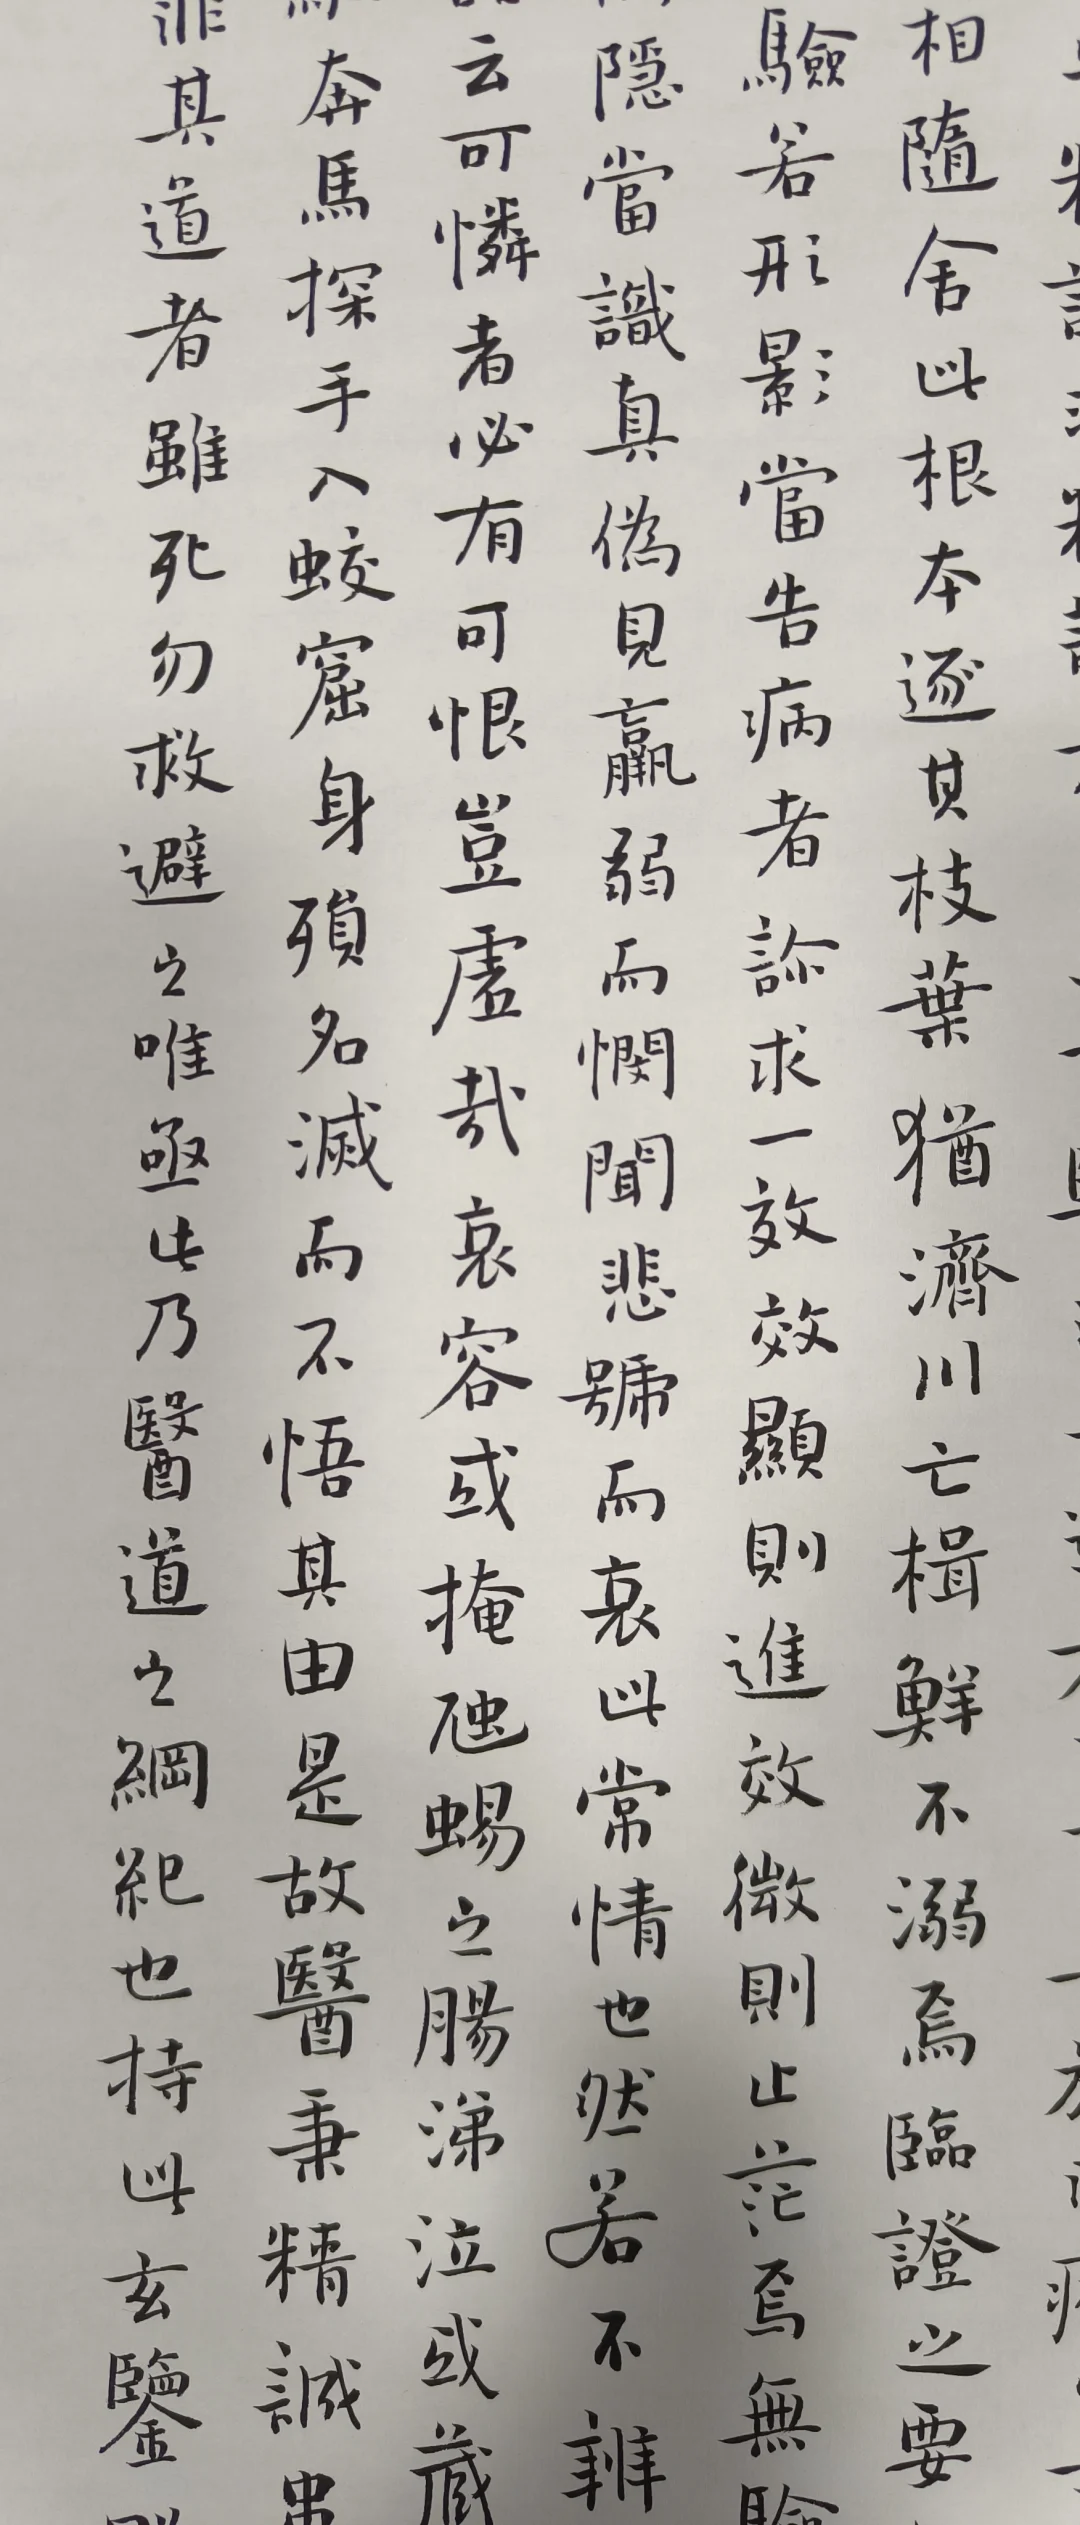 相隨舍此根本逐其枝葉猶濟川亡楫鮮不溺焉臨證之要
驗若形影當告病者診求一效效顯則進效微則止茫焉無驗
隱當識真偽見羸弱而憫聞悲號而哀此常情也然若不辨
云可憐者必有可恨豈虛哉哀容或掩虺蜴之腸涕泣或藏
奔馬探手入蛟窟身殞名滅而不悟其由是故醫秉精誠
非其道者雖死勿救避之唯亟此乃醫道之綱紀也持此玄鑒